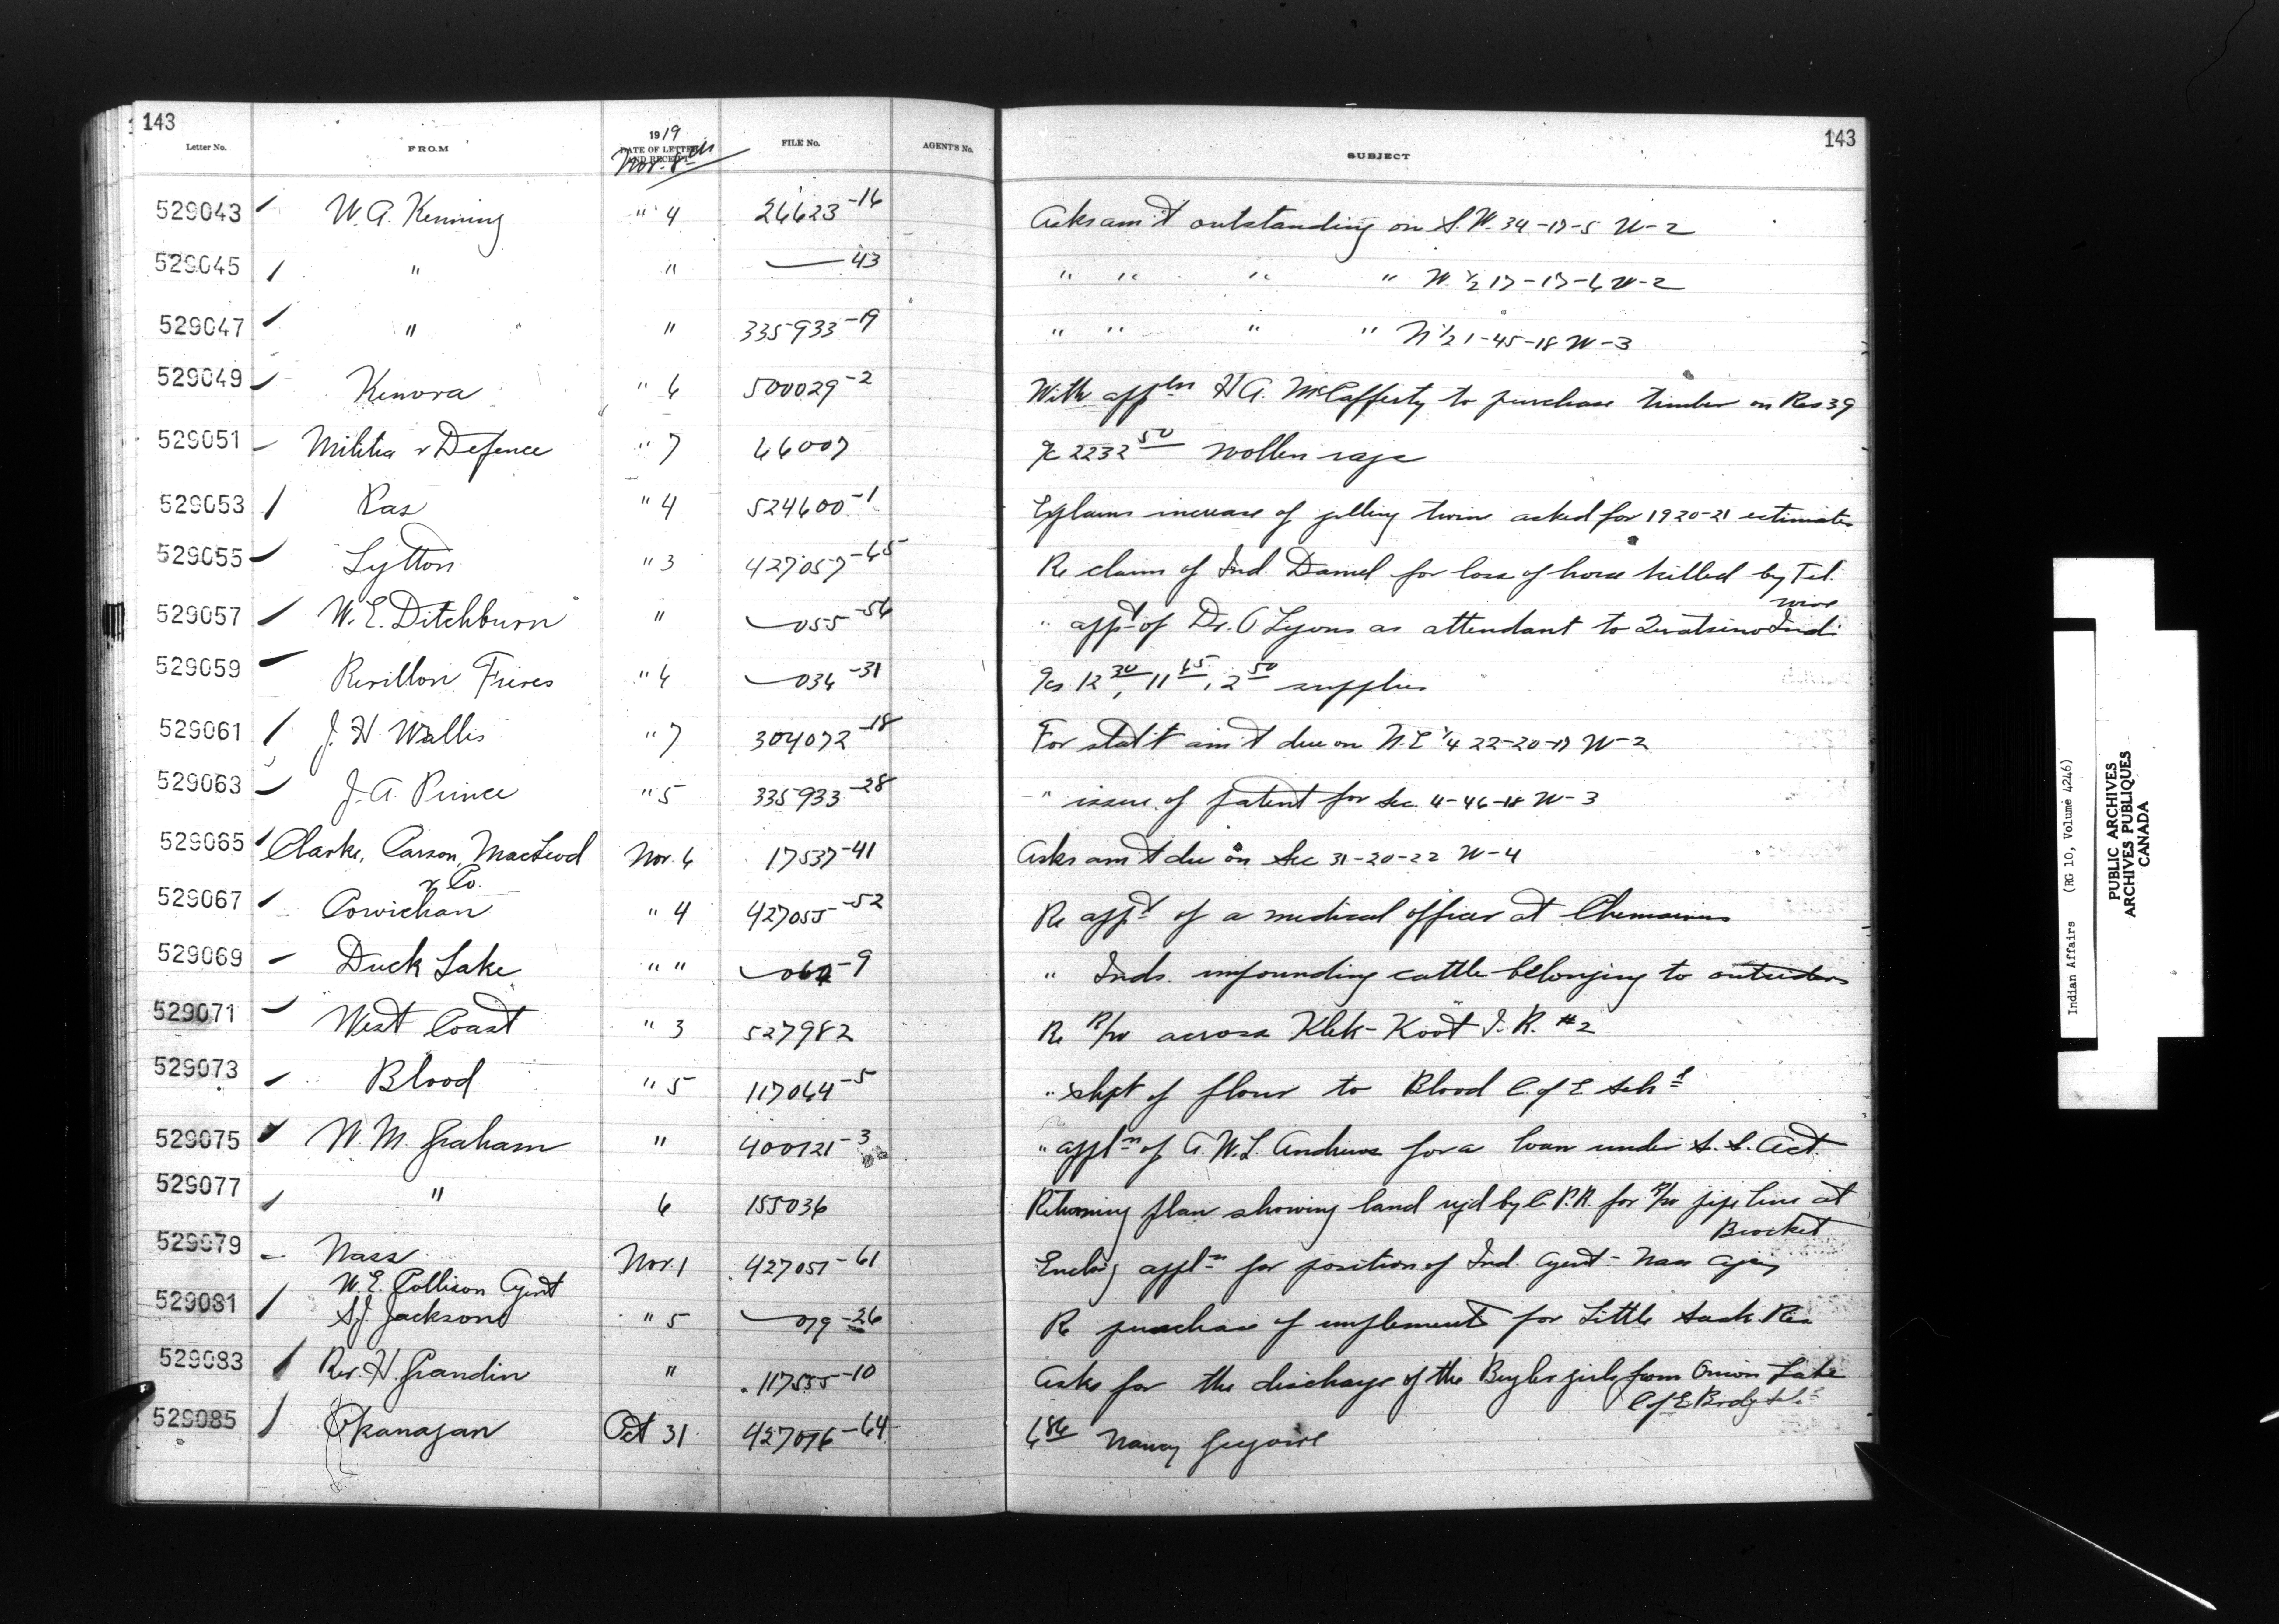 143
143
Letter No.
FROM
1919
DATE OF LETTER AND RECEIPT
Nov. 8th
FILE No.
AGENT'S No.
SUBJECT
529043 W. A. Kenning " 4 26623-16 Asks am't outstanding on S.W. 34-17-5 W-2
529045 " " — 43 " " " " W. ½ 17-17-6 W-2
529047 " " 335933-19 " " " " N ½ 1-45-18 W-3
529049 Kenora " 6 500029-2 With appln H A. McCafferty to purchase timber on Res 39
529051 Militia & Defence " 7 66007 a/c 2232 50 wollen rags
529053 Pas " 4 524600-1 Explains increase of gilling twine asked for 1920-21 estimates
529055 Lytton " 3 427057-65 Re claim of Ind. Daniel for loss of horse killed by Tel. wire
529057 W. E. Ditchburn " — 055-56 " app't of Dr. O Lyons as attendant to Quatsino Inds
529059 Revillon Freres " 6 — 034-31 a/cs 12 30, 11 65, 2 50 supplies
529061 J. H. Wallis " 7 304072-18 For stat't am't due on N.E ¼ 22-20-17 W-2
529063 J. A. Prince " 5 335933-28 " issue of patent for Sec 4-46-18 W-3
529065 Clarke, Carson, MacLeod & Co. Nov. 6 17537-41 Asks am't due on Sec 31-20-22 W-4
529067 Cowichan " 4 427055-52 Re app't of a medical officer at Chemainus
529069 Duck Lake " " — 064-9 " Inds. impounding cattle belonging to outsiders
529071 West Coast " 3 527982 Re R/W across Klek-Koot I. R. #2
529073 Blood " 5 117064-5 " shpt of flour to Blood C. of E Schl
529075 W. M. Graham " 400121-3 " appln of A. W. L. Andrews for a loan under S. S. Act
529077 " 6 155036 Returning plan showing land rq'd by C. P. R. for R/W pipe line at Brocket
529079 Nass W. E. Collison Agent Nov. 1 427051-61 Enclos'g appln for position of Ind. Agent - Nass Agency
529081 S. J. Jackson " 5 — 079-26 Re purchase of implements for Little Sask. Res
529083 Rev. H. Grandin " 117535-10 Asks for the discharge of the girls from Onion Lake C of E Brdg Schl
529085 Okanagan Oct 31 427076-64 6 86 Nancy
Indian Affairs (RG 10, Volume 4246)
PUBLIC ARCHIVES
ARCHIVES PUBLIQUES
CANADA